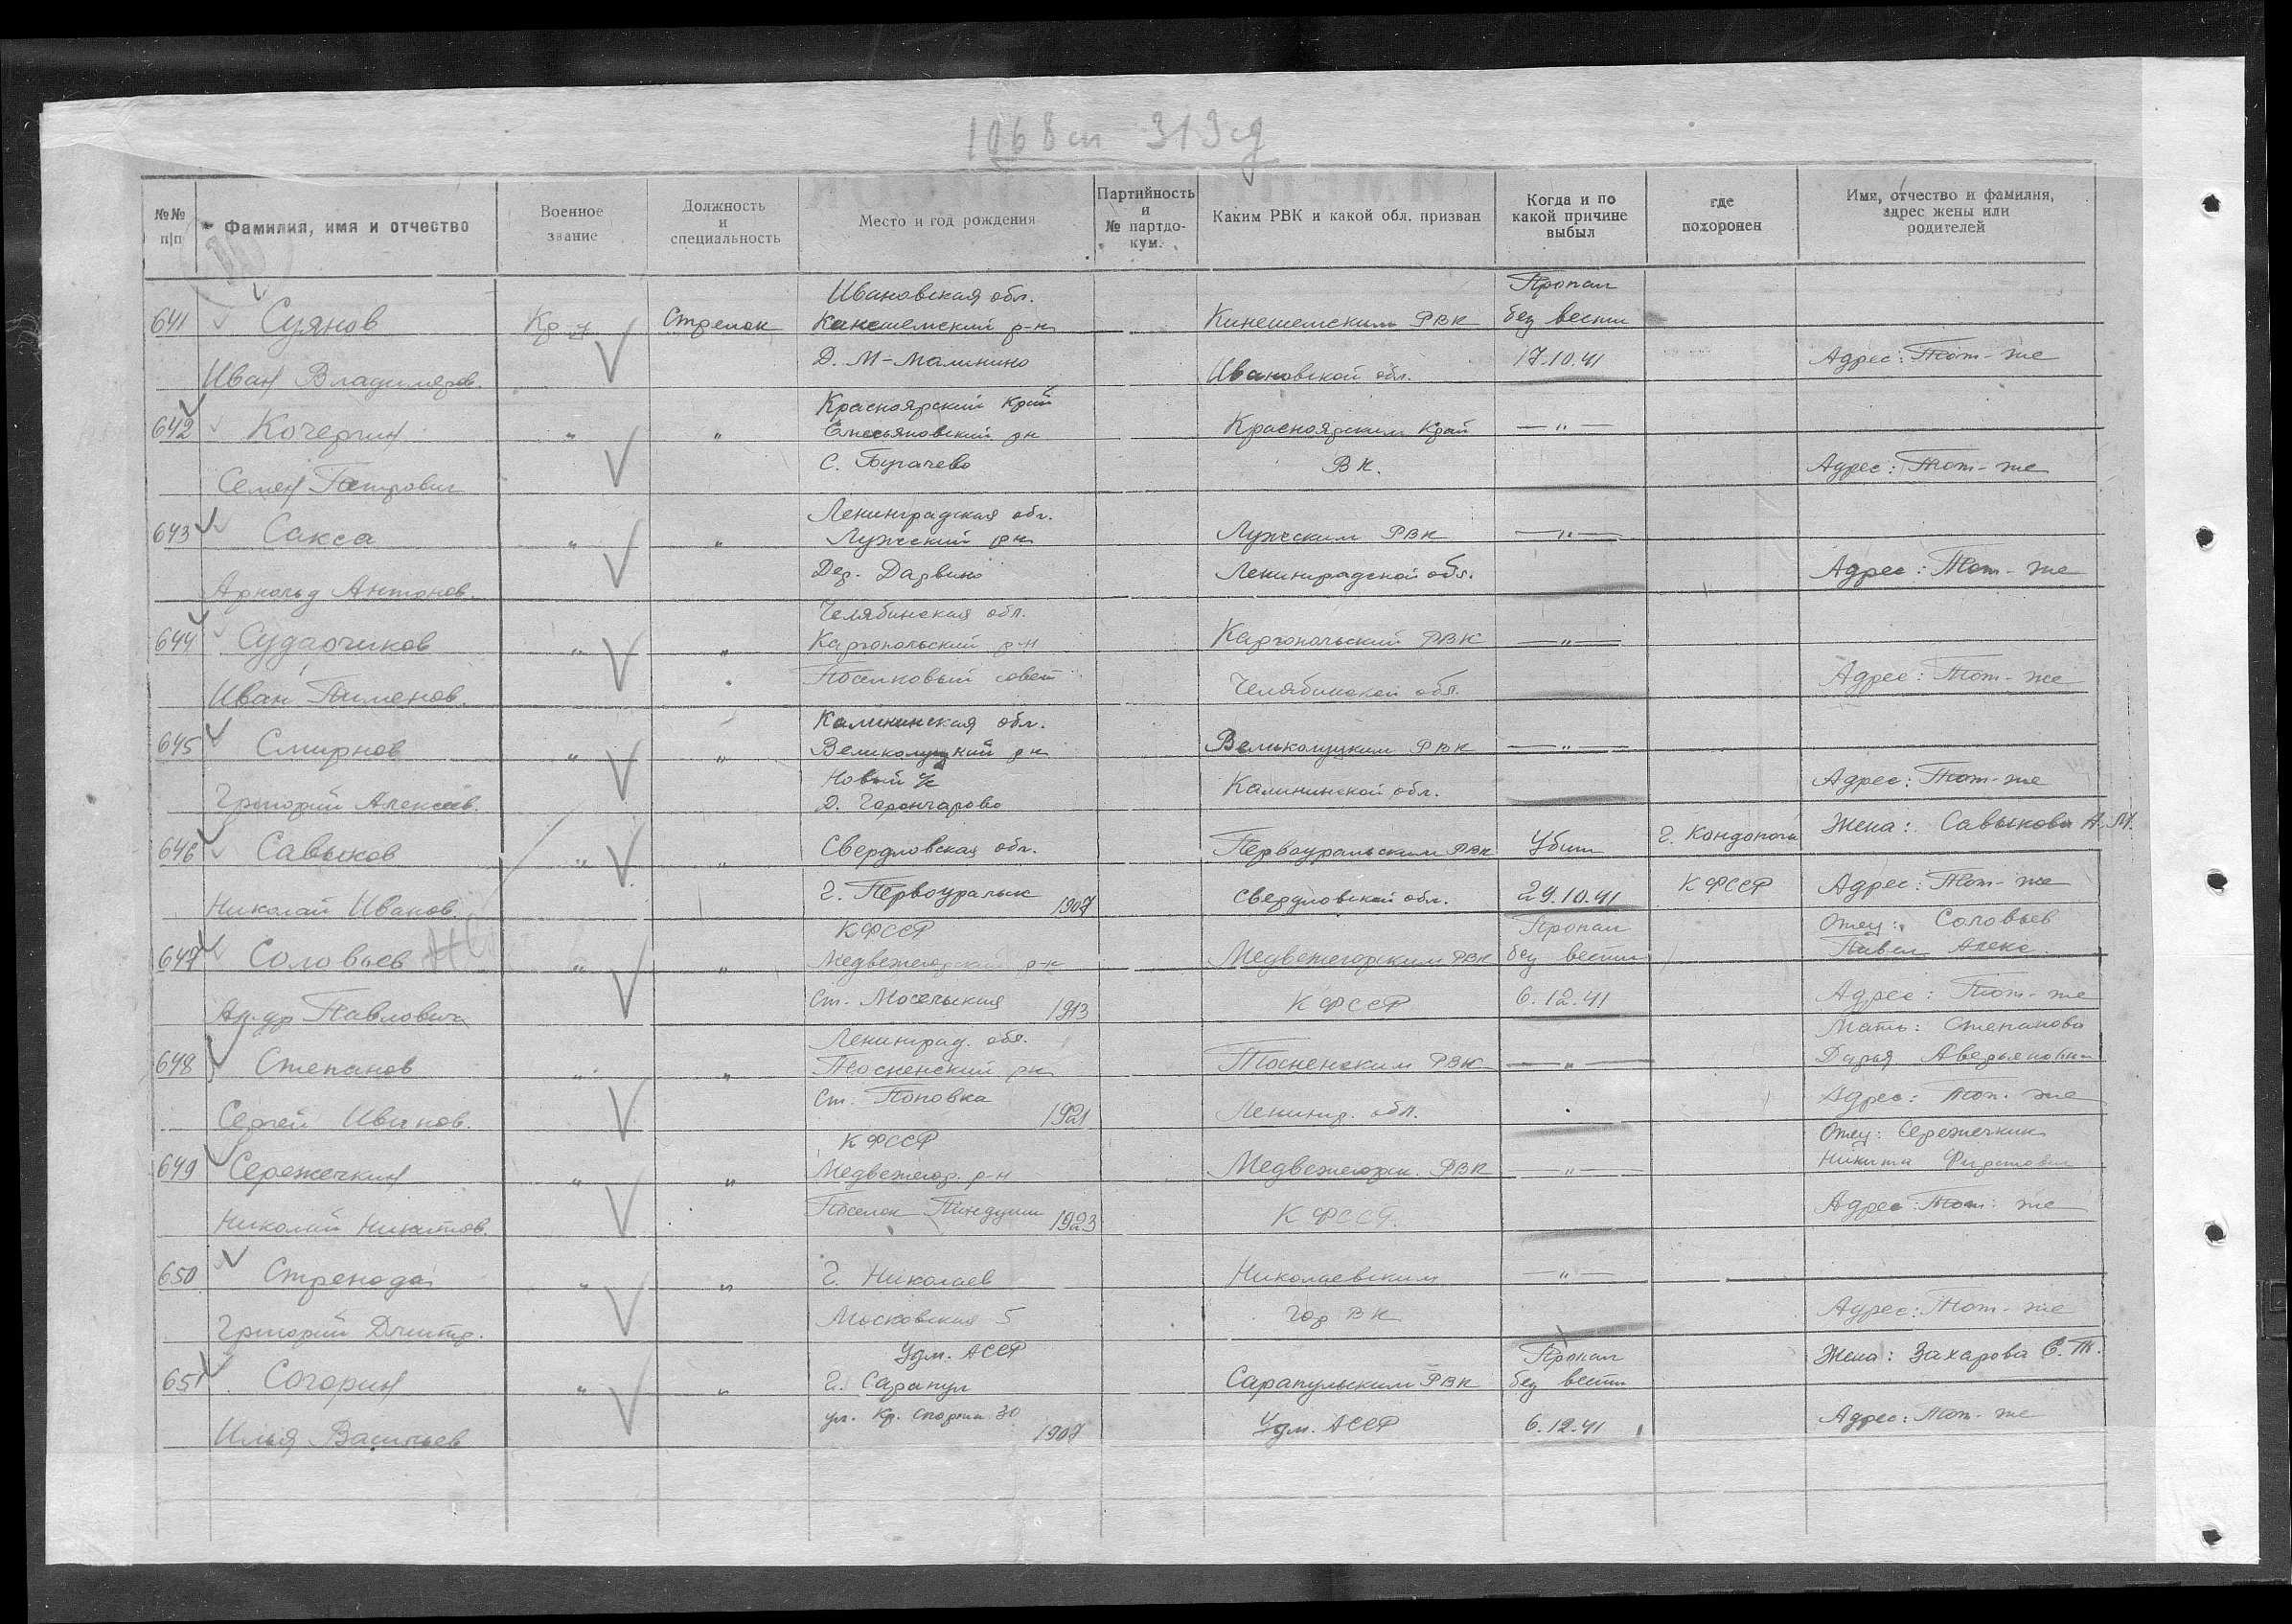 1068 сп 313 сд
№№ п|п
Фамилия, имя и отчество
Военное звание
Должность и специальность
Место и год рождения
Партийность и № партдокум.
Каким РВК и какой обл. призван
Когда и по какой причине выбыл
где похоронен
Имя, отчество и фамилия, адрес жены или родителей
Ивановская обл. Пропал
641 Суянов Кр-ц Стрелок Кинешемский р-н Кинешемским РВК без вести
Иван Владимиров. Д. М-Малинино Ивановской обл. 17.10.41 Адрес: Тот-же
Красноярский Край
642 Кочергин " " рн Красноярским Край — " —
Семен Петрович С. Бугачево ВК. Адрес: Тот-же
Ленинградская обл.
643 Сакса " " Лужский рн Лужским РВК — " —
Арнольд Антонов. Дер. Дарвино Ленинградской обл. Адрес: Тот-же
Челябинская обл.
644 Сударчиков " " Каргопольский р-н Каргопольский РВК — " —
Иван Пименов. Поселковый совет Челябинской обл. Адрес: Тот-же
Калининская обл.
645 Смирнов " " Великолуцкий рн Великолуцким РВК — " —
Новый
Григорий Алексеев. Д. Калининской обл. Адрес: Тот-же
646 Савыков " " Свердловская обл. Первоуральским РВК Убит г. Кондопога Жена: Савыкова А. М.
Николай Иванов. г. Первоуральск 1907 Свердловской обл. 29.10.41 КФССР Адрес: Тот-же
КФССР Пропал Отец: Соловьев
647 Соловьев " " Медвежегорский р-н Медвежегорским РВК без вести Павел Алекс.
Ал-др Павлович Ст. Масельская 1913 КФССР 6.12.41 Адрес: Тот-же
Ленинград. обл. Мать: Степанова
648 Степанов " " Тосненский рн Тосненским РВК — " — Дарья Аверьяновна
Сергей Иванов. ст. Поповка 1921 Ленингр. обл. Адрес: Тот-же
КФССР Отец: Сережечкин
649 Сережечкин " " Медвежегор. р-н Медвежегорск. РВК — " — Никита
Николай Никитов. Поселок Пиндуши 1923 КФССР. Адрес: Тот-же
650 " " г. Николаев Николаевским — " —
Григорий Дмитр. Московская 5 Гор ВК Адрес: Тот-же
Удм. АССР Пропал Жена: Захарова Е. Т.
651 Согорин " " г. Сарапул Сарапульским РВК без вести
Илья Васильев ул. Кр. Спорта 30 1907 Удм. АССР 6.12.41 Адрес: Тот-же